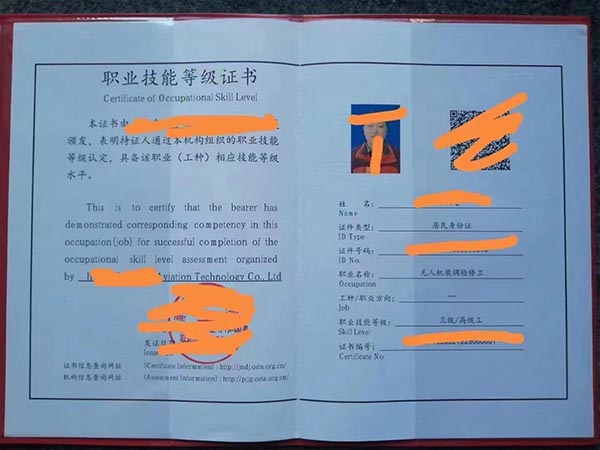 职业技能等级证书
Certificate of Occupational Skill Level
本证书由
颁发，表明持证人通过本机构组织的职业技能
等级认定，具备该职业（工种）相应技能等级
水平。
This is to certify that the bearer has
demonstrated corresponding competency in this
occupation(job) for successful completion of the
occupational skill level assessment organized
by
Technology Co., Ltd
发证日期
证书信息查询网址 (Certificate Information) : http://jndj.osta.org.cn/
机构信息查询网址 (Assessment Information) : http://pjjg.osta.org.cn/
姓 名：
Name
证件类型： 居民身份证
ID Type
证件号码：
ID No.
职业名称： 无人机装调检修工
Occupation
工种/职业方向： --
Job
职业技能等级： 三级/高级工
Skill Level
证书编号：
Certificate No.